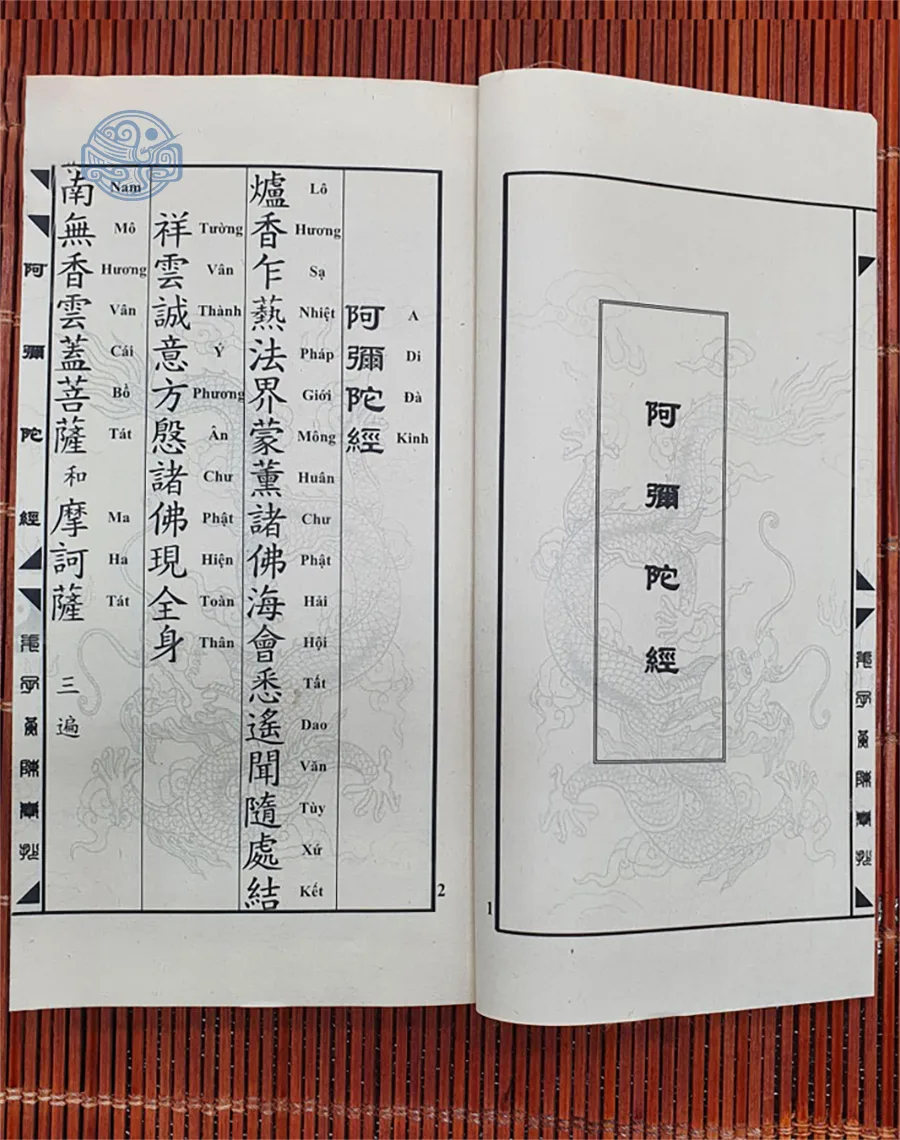 阿彌陀經
1
阿彌陀經
A Di Đà Kinh
爐香乍爇法界蒙薰諸佛海會悉遙聞隨處結
Lô Hương Sạ Nhiệt Pháp Giới Mông Huân Chư Phật Hải Hội Tất Dao Văn Tùy Xứ Kết
祥雲誠意方慇諸佛現全身
Tường Vân Thành Ý Phương Ân Chư Phật Hiện Toàn Thân
南無香雲蓋菩薩和摩訶薩 三遍
Nam Mô Hương Vân Cái Bồ Tát Ma Ha Tát
阿彌陀經
2